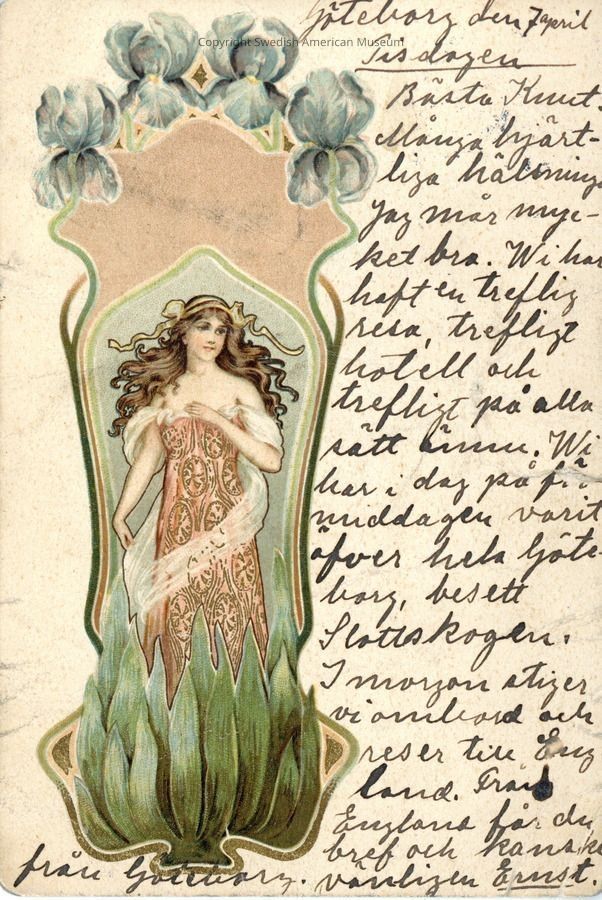 Copyright Swedish American Museum
Göteborg den 7 april
Tisdagen
Bästa Knut.
Många hjärt-
liga hälsninga
Jag mår myc-
ket bra. Wi har
haft en treflig
resa, trefligt
hotell och
trefligt på alla
sätt ännu. Wi
har i dag på
middagen varit
öfver hela Göte-
borg, besett
Slottskogen.
I morgon stiger
vi ombord och
reser till Eng
land. Från
England får du
bref och kanske
från Göteborg.
vänligen Ernst.